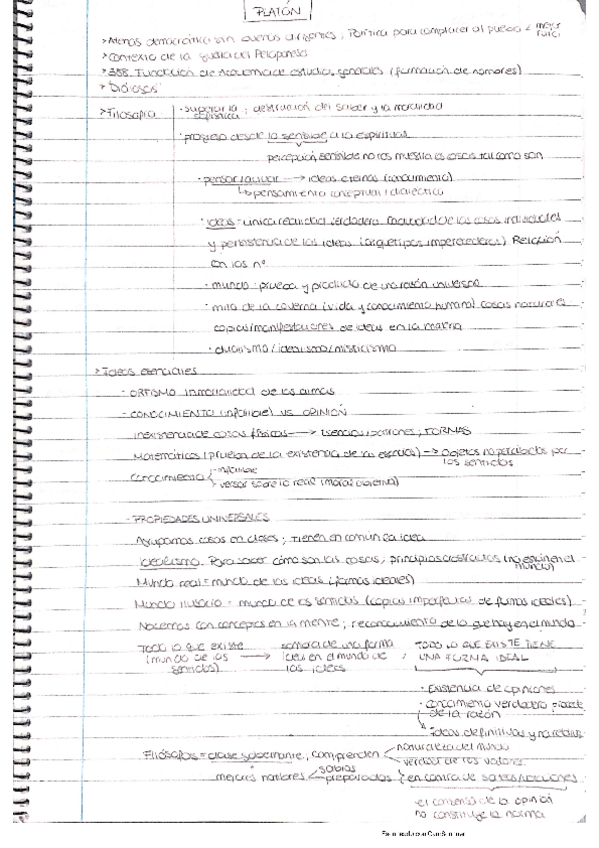 PLATÓN
> Atenas democrática sin buenos dirigentes, Política para complacer al pueblo
> Contexto de la Guerra del Peloponeso
> 388. Fundación de Academia de estudios generales (formación de hombres)
> Filosofía
superar la ; destrucción del saber y la moralidad
· progreso desde lo sensible a lo espiritual
percepción sensible no nos muestra las cosas tal como son
→ ideas eternas (conocimiento)
↳ pensamiento conceptual / dialéctica
· Ideas = única realidad verdadera de las cosas individuales
y persistencia de las ideas (arquetipos imperecederos) Relación
con los nº
· mundo: prueba y producto de una razón universal
· mito de la caverna (vida y conocimiento humano) cosas naturales
copias/manifestaciones de ideas en la materia
· dualismo/idealismo/misticismo
> Ideas esenciales
- ORFISMO inmortalidad de las almas
- CONOCIMIENTO (infalible) VS OPINIÓN
Inexistencia de cosas físicas → esencias/patrones, FORMAS
Matemáticas (prueba de la existencia de las esencias) → Objetos no percibidos por
los sentidos
Conocimiento
- infalible
- versar sobre lo real (moral objetiva)
- PROPIEDADES UNIVERSALES
Agrupamos cosas en clases; tienen en común la idea
Idealismo. Para saber cómo son las cosas, principios abstractos (no están en el
mundo)
Mundo real = mundo de las ideas (formas ideales)
Mundo ilusorio = mundo de los sentidos (copias imperfectas de formas ideales)
Nacemos con conceptos en la mente; reconocimiento de lo que hay en el mundo
Todo lo que existe
(mundo de los
sentidos)
→
sombra de una forma
ideal en el mundo de
las ideas
TODO LO QUE EXISTE TIENE
UNA FORMA IDEAL
· Existencia de opiniones
· conocimiento verdadero procede
de la razón
Ideas definitivas y no relativas
Filósofos = clase gobernante, comprenden
naturaleza del mundo
verdad de los valores
mejores hombres
sabios
preparados
en contra de
el consenso de la opinión
no constituye la norma